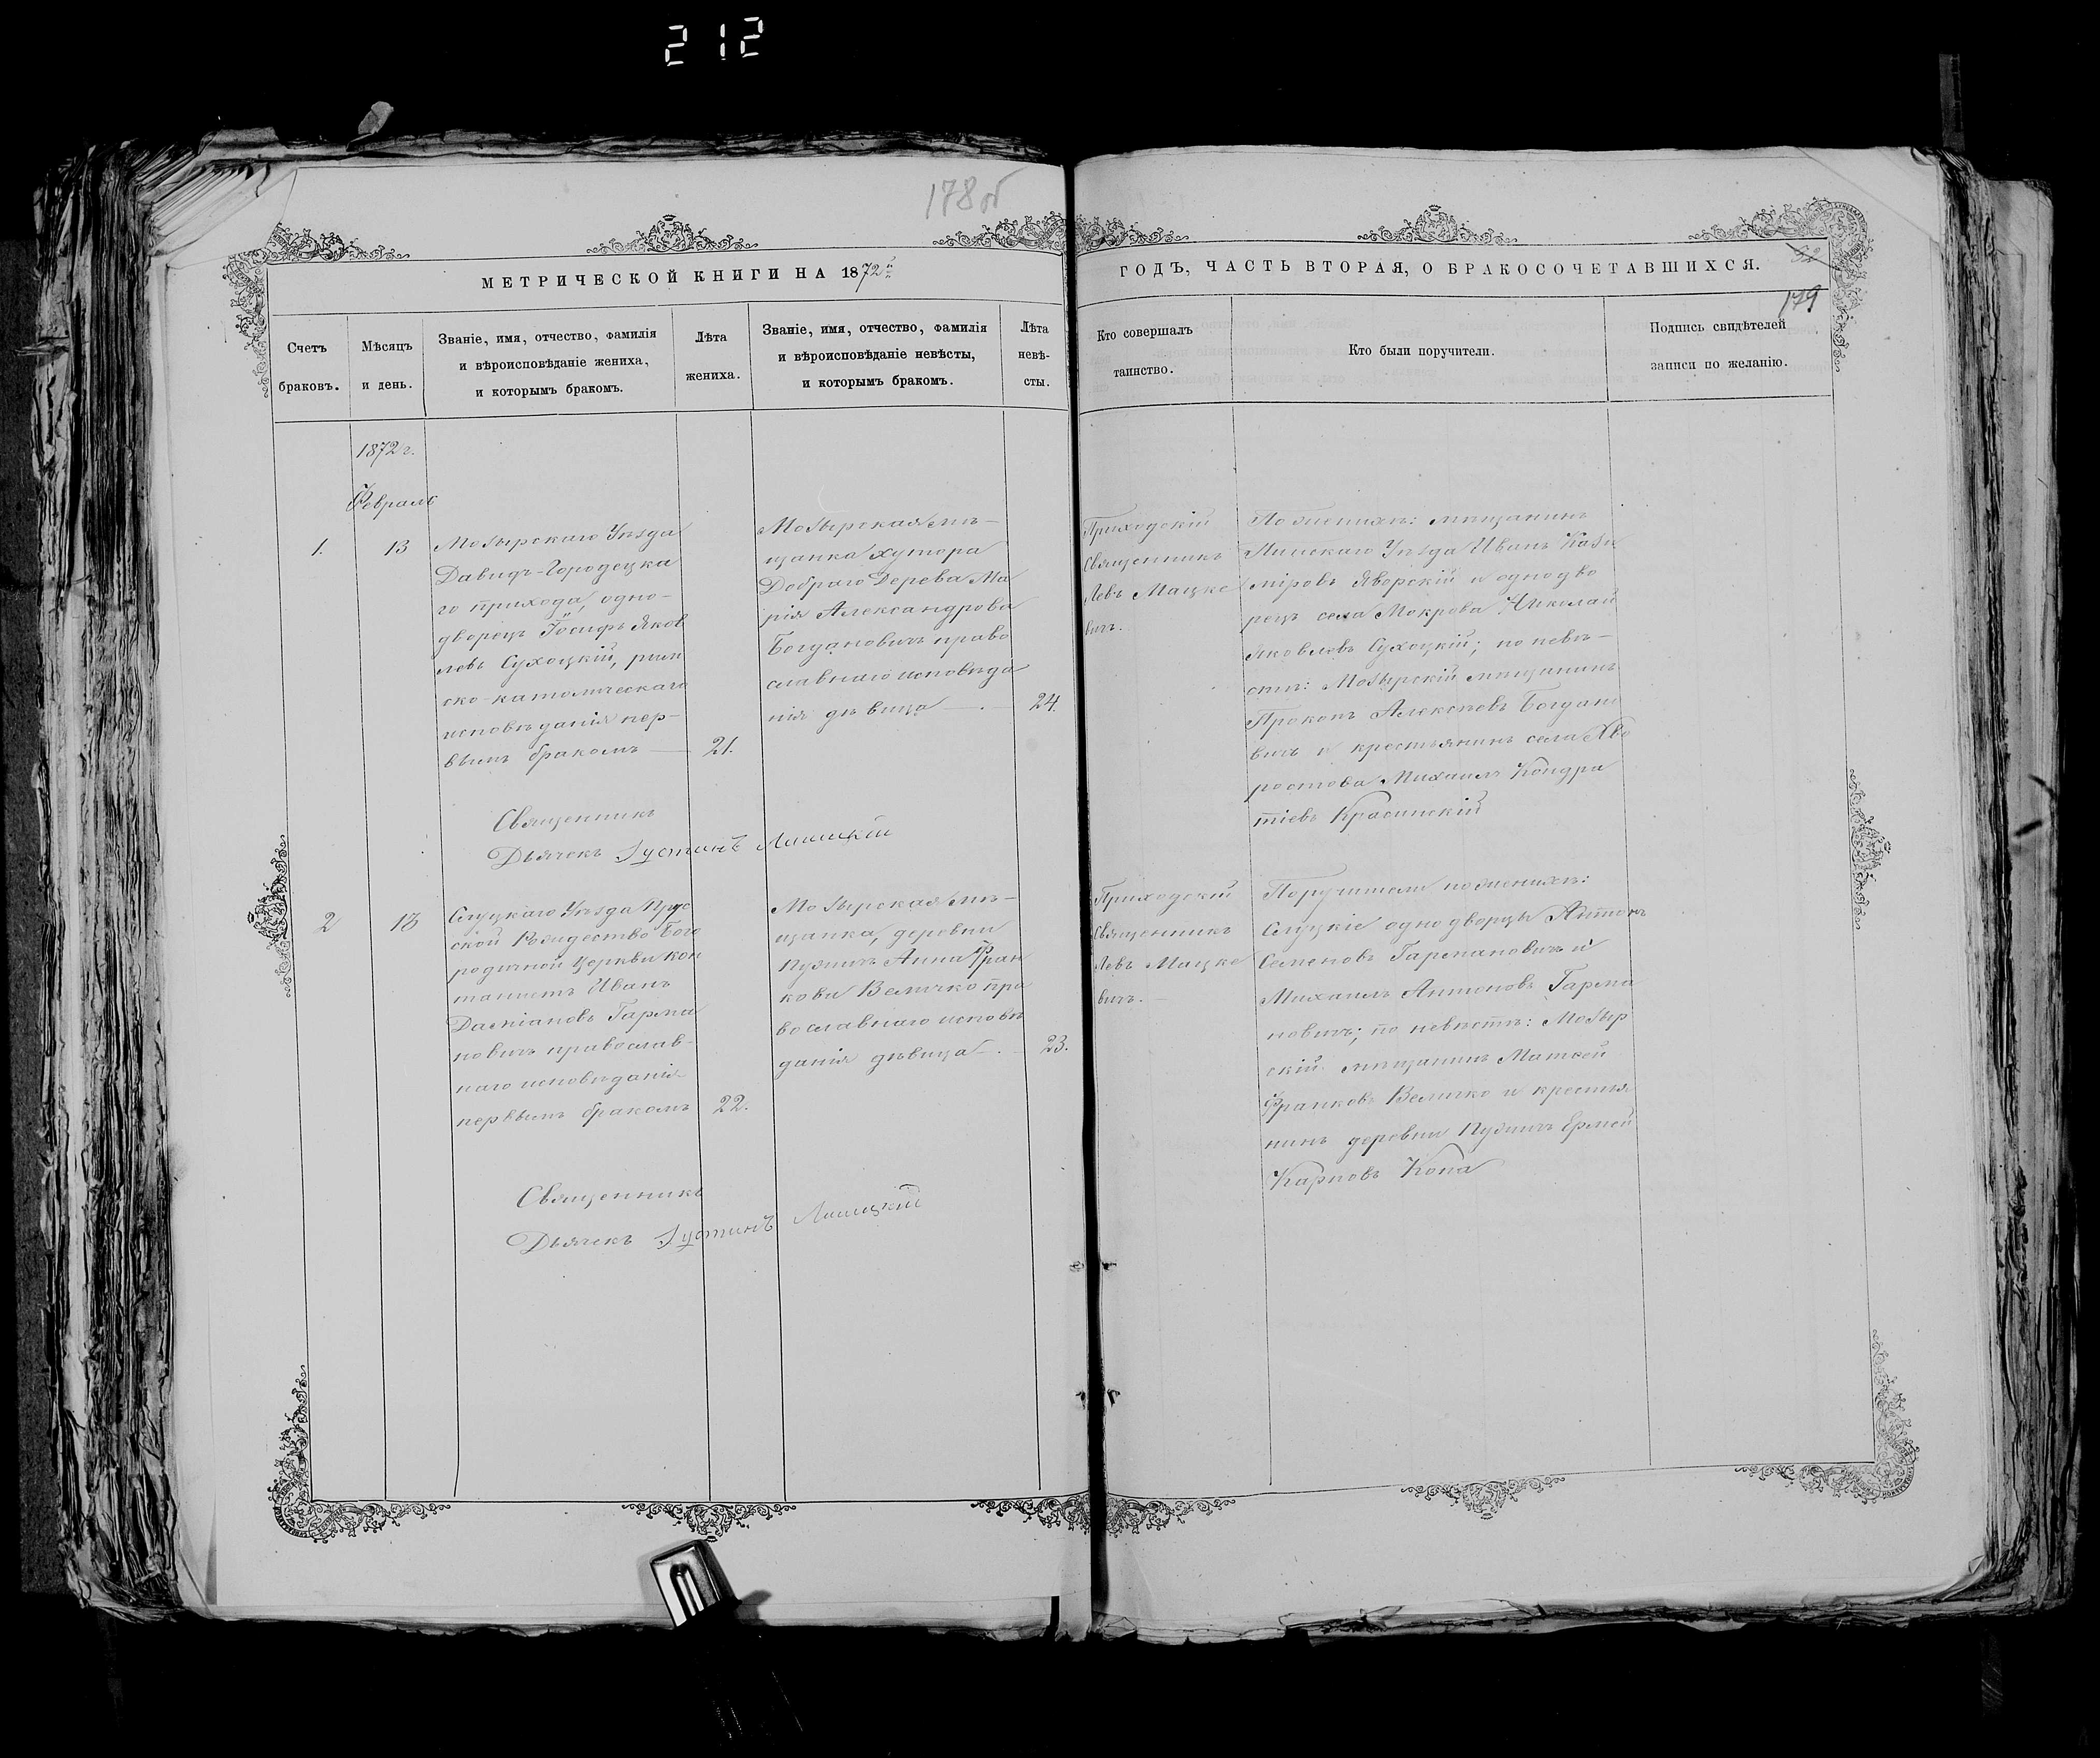 212
178 об
МЕТРИЧЕСКОЙ КНИГИ НА 1872й
ГОДЪ, ЧАСТЬ ВТОРАЯ, О БРАКОСОЧЕТАВШИХСЯ.
179
Счетъ
браковъ.
Мѣсяцъ
и день.
Званіе, имя, отчество, фамилія
и вѣроисповѣданіе жениха,
и которымъ бракомъ.
Лѣта
жениха.
Званіе, имя, отчество, фамилія
и вѣроисповѣданіе невѣсты,
и которымъ бракомъ.
Лѣта
невѣ-
сты.
Кто совершалъ
таинство.
Кто были поручители.
Подпись свидѣтелей
записи по желанію.
1872 г.
Февраль
1.
13
Мозырскаго Уѣзда
Давидъ-Городецка
го прихода, одно-
дворецъ Іосифъ Яков
левъ Сухоцкій, рим
ско-католическаго
исповѣданія пер-
вымъ бракомъ
21.
Мозырская мѣ-
щанка хутора
Добраго Дерева Ма
рія Александрова
Богдановичъ право
славнаго исповѣда
нія дѣвица
24.
Приходскій
Священникъ
Левъ Мацке
вичъ.
По женихѣ: мѣщанинъ
Минскаго Уѣзда Иванъ Кази
міровъ Яворскій и однодво
рецъ села Мокрова Николай
Яковлевъ Сухоцкій; по невѣ-
стѣ: Мозырскій мѣщанинъ
Прокопъ Алексѣевъ Богдано
вичъ и крестьянинъ села Хво
ростова Михаилъ Кондра
тіевъ Красинскій
Священникъ
Дьячекъ Іустинъ Лисицкій
2
13
Слуцкаго Уѣзда Прус
ской Рождество Бого
родичной Церкви Кон
тонистъ Иванъ
Даміановъ Гарма
новичъ православ-
наго исповѣданія
первымъ бракомъ
22.
Мозырская мѣ-
щанка, деревни
Пузичъ Анна Фран
кова Величко пра
вославнаго исповѣ
данія дѣвица
23.
Приходскій
Священникъ
Левъ Мацке
вичъ.
Поручители по женихѣ:
Слуцкіе однодворцы Антонъ
Семеновъ Гармановичъ и
Михаилъ Антоновъ Гарма
новичъ; по невѣстѣ: Мозыр
скій мѣщанинъ Матвей
Франковъ Величко и крестья
нинъ деревни Пузичъ Ермей
Карповъ Копа
Священникъ
Дьячекъ Іустинъ Лисицкій